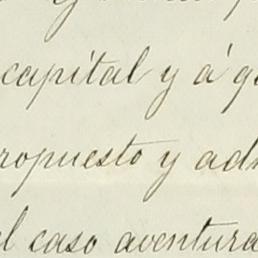 capital y á
ropuesto y
el caso aventura